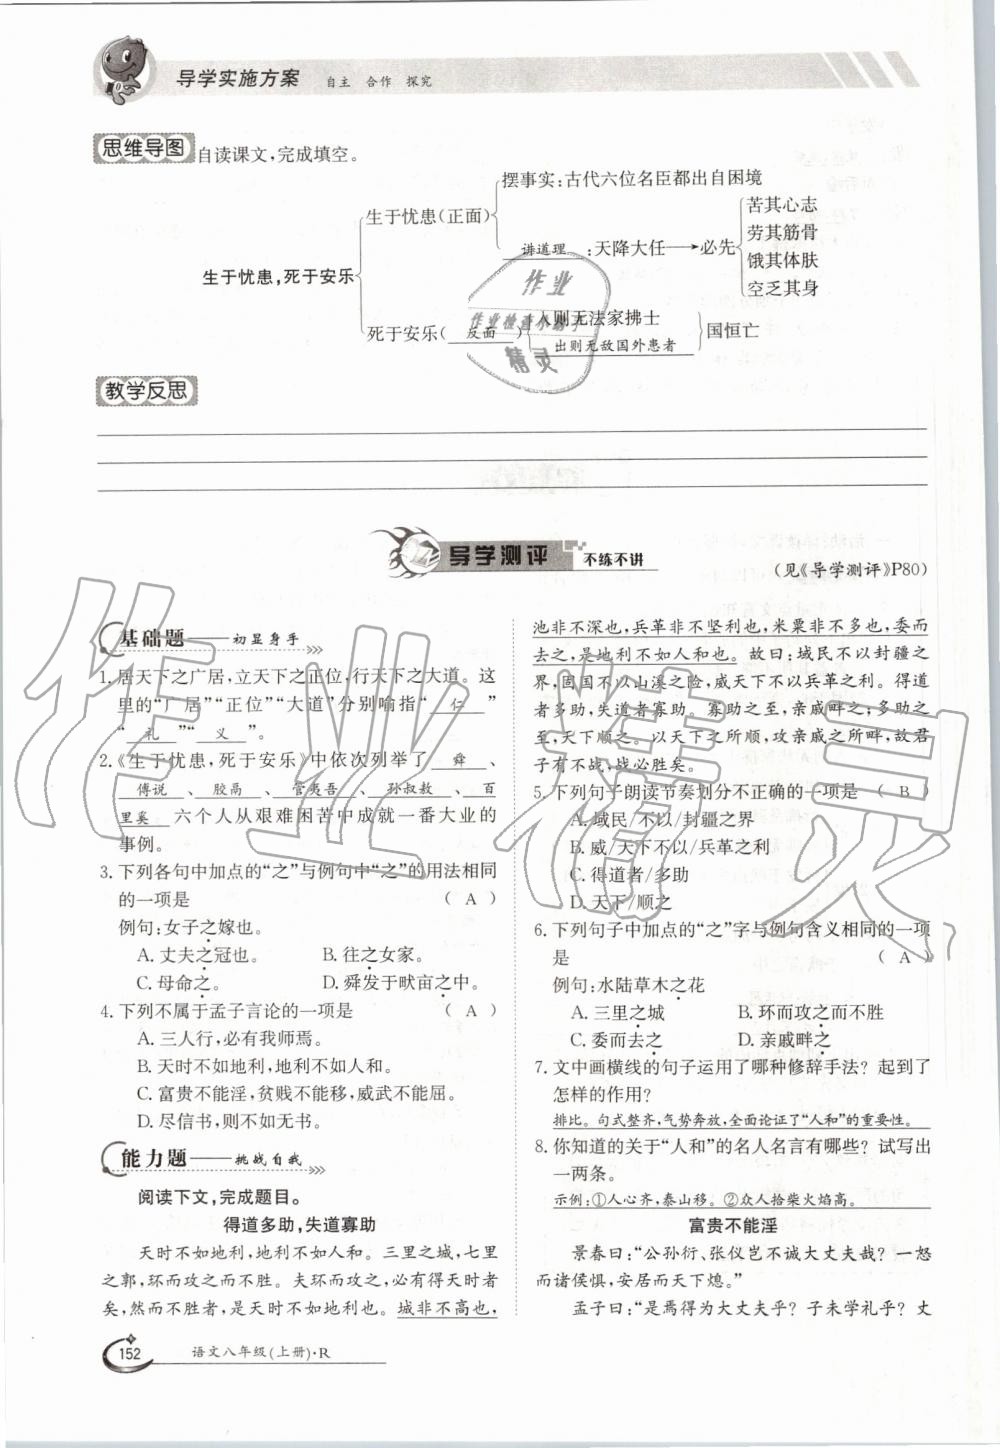 导学实施方案 自主 合作 探究
思维导图 自读课文,完成填空。
摆事实:古代六位名臣都出自困境
生于忧患(正面)
讲道理:天降大任→必先
苦其心志
劳其筋骨
饿其体肤
空乏其身
生于忧患,死于安乐
死于安乐(反面)
入则无法家拂士
出则无敌国外患者
国恒亡
作业
作业检查小助手
精灵
教学反思
导学测评 不练不讲
(见《导学测评》P80)
基础题——初显身手
1. 居天下之广居,立天下之正位,行天下之大道。这
里的“广居”“正位”“大道”分别喻指“仁”
“礼”“义”。
2.《生于忧患,死于安乐》中依次列举了 舜 、
傅说 、 胶鬲 、 管夷吾 、 孙叔敖 、 百
里奚 六个人从艰难困苦中成就一番大业的
事例。
3. 下列各句中加点的“之”与例句中“之”的用法相同
的一项是 ( A )
例句:女子之嫁也。
A. 丈夫之冠也。 B. 往之女家。
C. 母命之。 D. 舜发于畎亩之中。
4. 下列不属于孟子言论的一项是 ( A )
A. 三人行,必有我师焉。
B. 天时不如地利,地利不如人和。
C. 富贵不能淫,贫贱不能移,威武不能屈。
D. 尽信书,则不如无书。
能力题——挑战自我
阅读下文,完成题目。
得道多助,失道寡助
天时不如地利,地利不如人和。三里之城,七里
之郭,环而攻之而不胜。夫环而攻之,必有得天时者
矣,然而不胜者,是天时不如地利也。城非不高也,
池非不深也,兵革非不坚利也,米粟非不多也,委而
去之,是地利不如人和也。故曰:域民不以封疆之
界,固国不以山溪之险,威天下不以兵革之利。得道
者多助,失道者寡助。寡助之至,亲戚畔之;多助之
至,天下顺之。以天下之所顺,攻亲戚之所畔,故君
子有不战,战必胜矣。
5. 下列句子朗读节奏划分不正确的一项是 ( B )
A. 域民/不以/封疆之界
B. 威/天下不以/兵革之利
C. 得道者/多助
D. 天下/顺之
6. 下列句子中加点的“之”字与例句含义相同的一项
是 ( A )
例句:水陆草木之花
A. 三里之城 B. 环而攻之而不胜
C. 委而去之 D. 亲戚畔之
7. 文中画横线的句子运用了哪种修辞手法?起到了
怎样的作用?
排比。句式整齐,气势奔放,全面论证了“人和”的重要性。
8. 你知道的关于“人和”的名人名言有哪些?试写出
一两条。
示例:①人心齐,泰山移。②众人拾柴火焰高。
富贵不能淫
景春曰:“公孙衍、张仪岂不诚大丈夫哉?一怒
而诸侯惧,安居而天下熄。”
孟子曰:“是焉得为大丈夫乎?子未学礼乎?丈
作业精灵
152 语文八年级(上册)·R